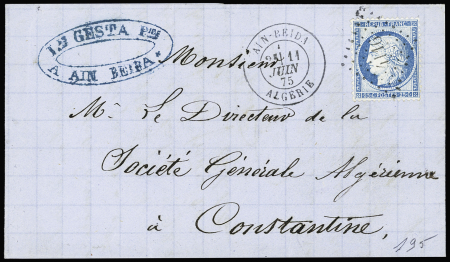 Ls GESTA Pre
A AIN BEIDA
AIN-BEIDA
11
JUIN
75
ALGERIE
REPUB. FRANC.
25 C. POSTES 25 C.
Monsieur
Mr. Le Directeur de la
Société Générale Algérienne
à Constantine,
195